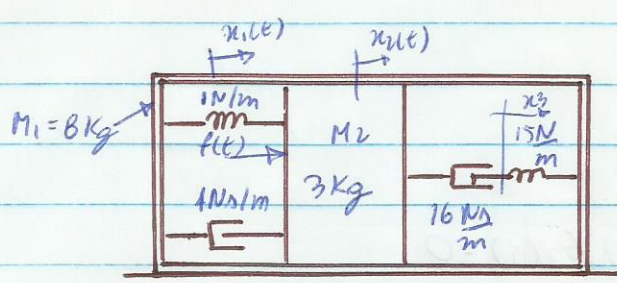 x₁(t) x₂(t)
M₁ = 8 Kg
1N/m
f(t)
4Ns/m
M₂
3 Kg
x3
15N/m
16 Ns/m